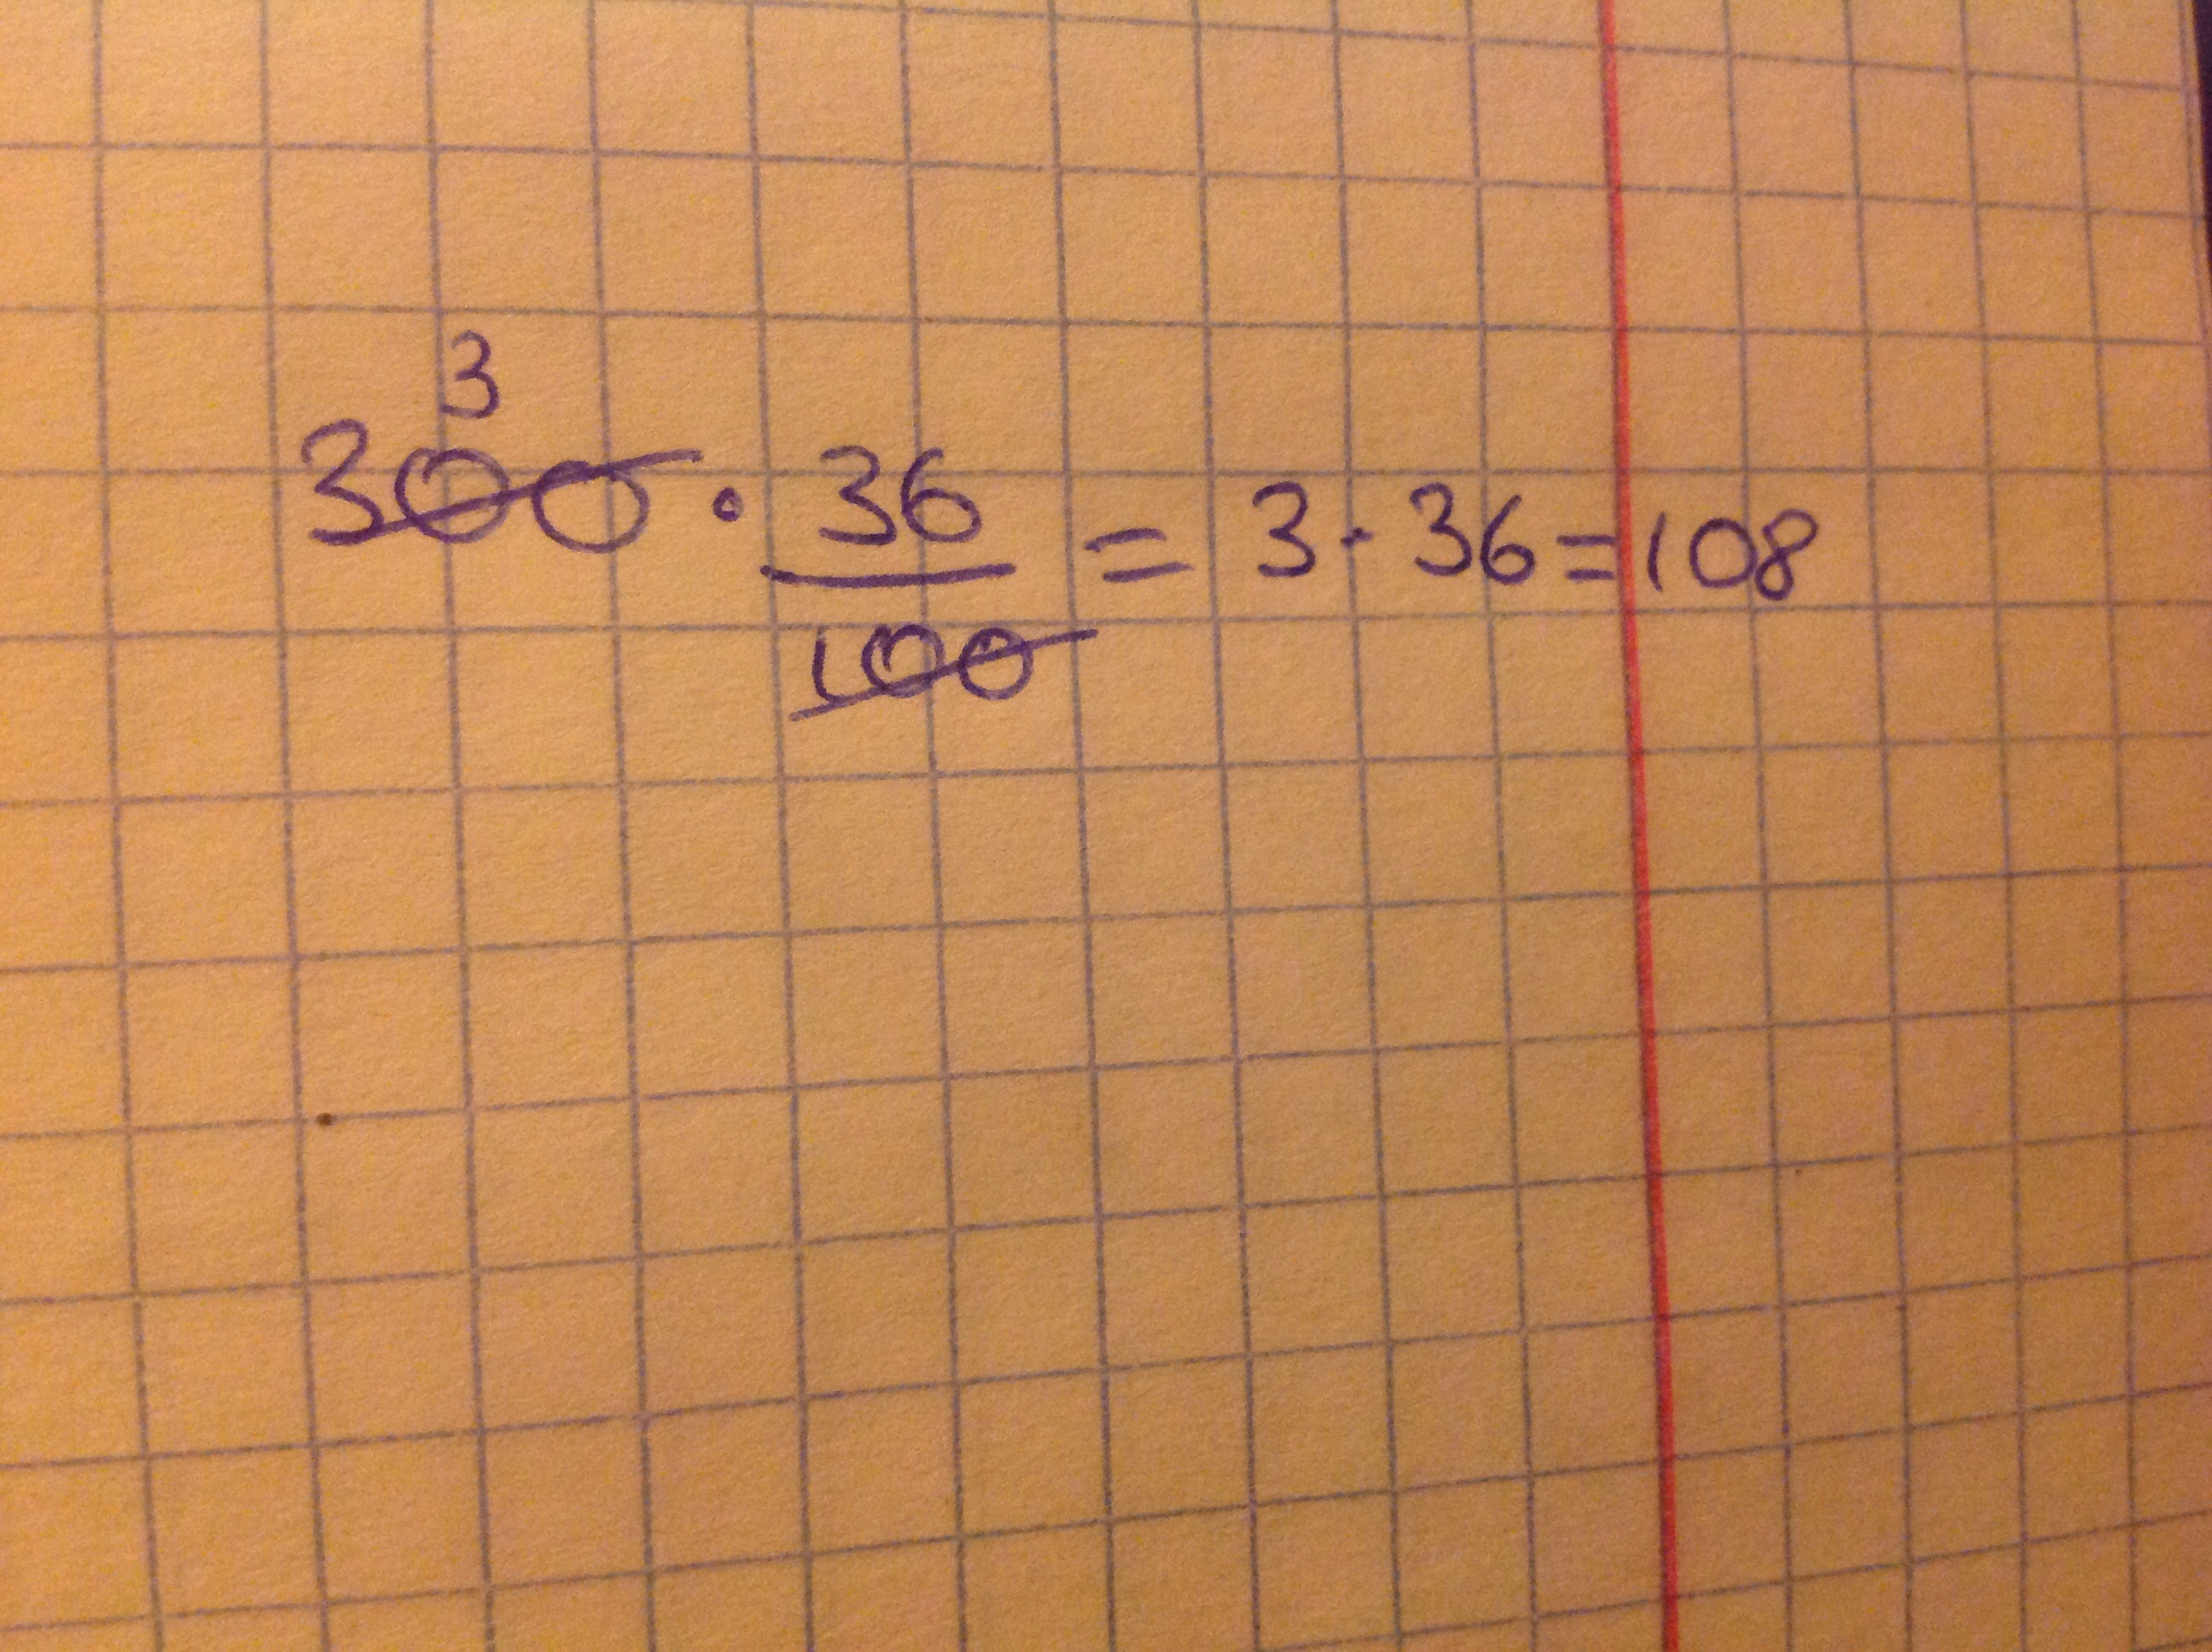 3
300 · 36/100 = 3 · 36 = 108